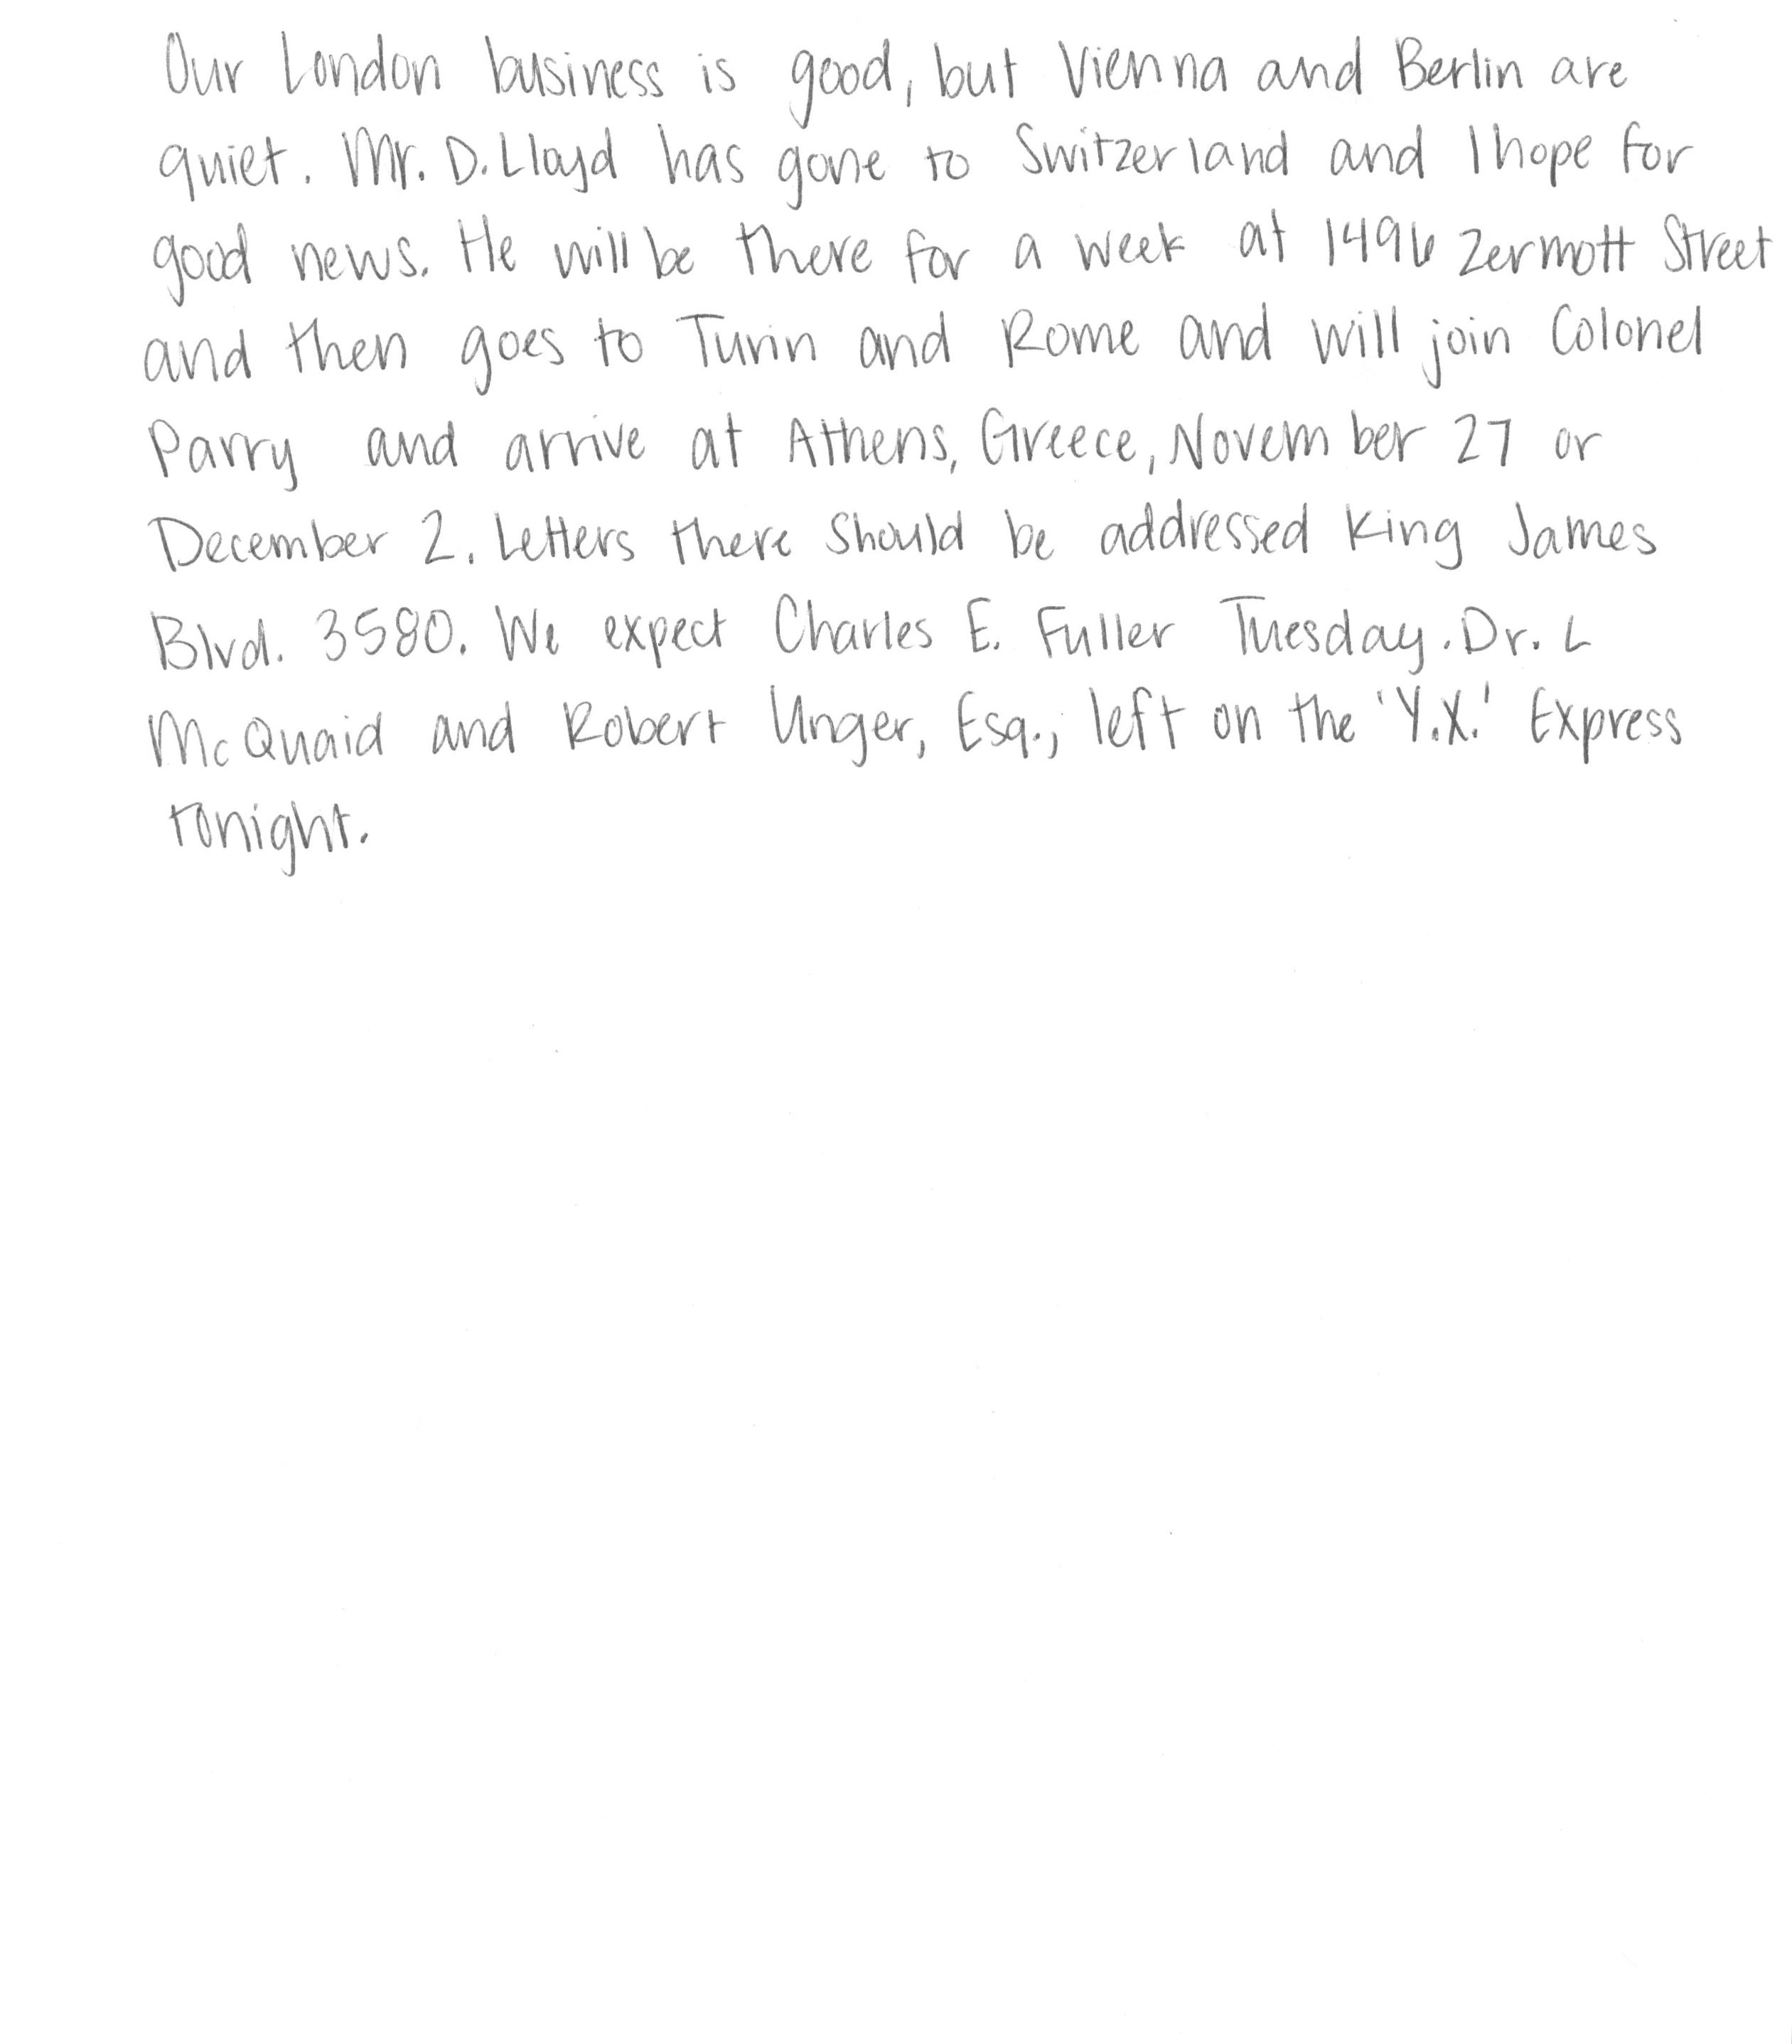 Our London business is good, but Vienna and Berlin are
quiet. Mr. D. Lloyd has gone to Switzerland and I hope for
good news. He will be there for a week at 1496 Zermott Street
and then goes to Turin and Rome and will join Colonel
Parry and arrive at Athens, Greece, November 27 or
December 2. Letters there should be addressed King James
Blvd. 3580. We expect Charles E. Fuller Tuesday. Dr. L
McQuaid and Robert Unger, Esq., left on the 'Y.X.' Express
tonight.